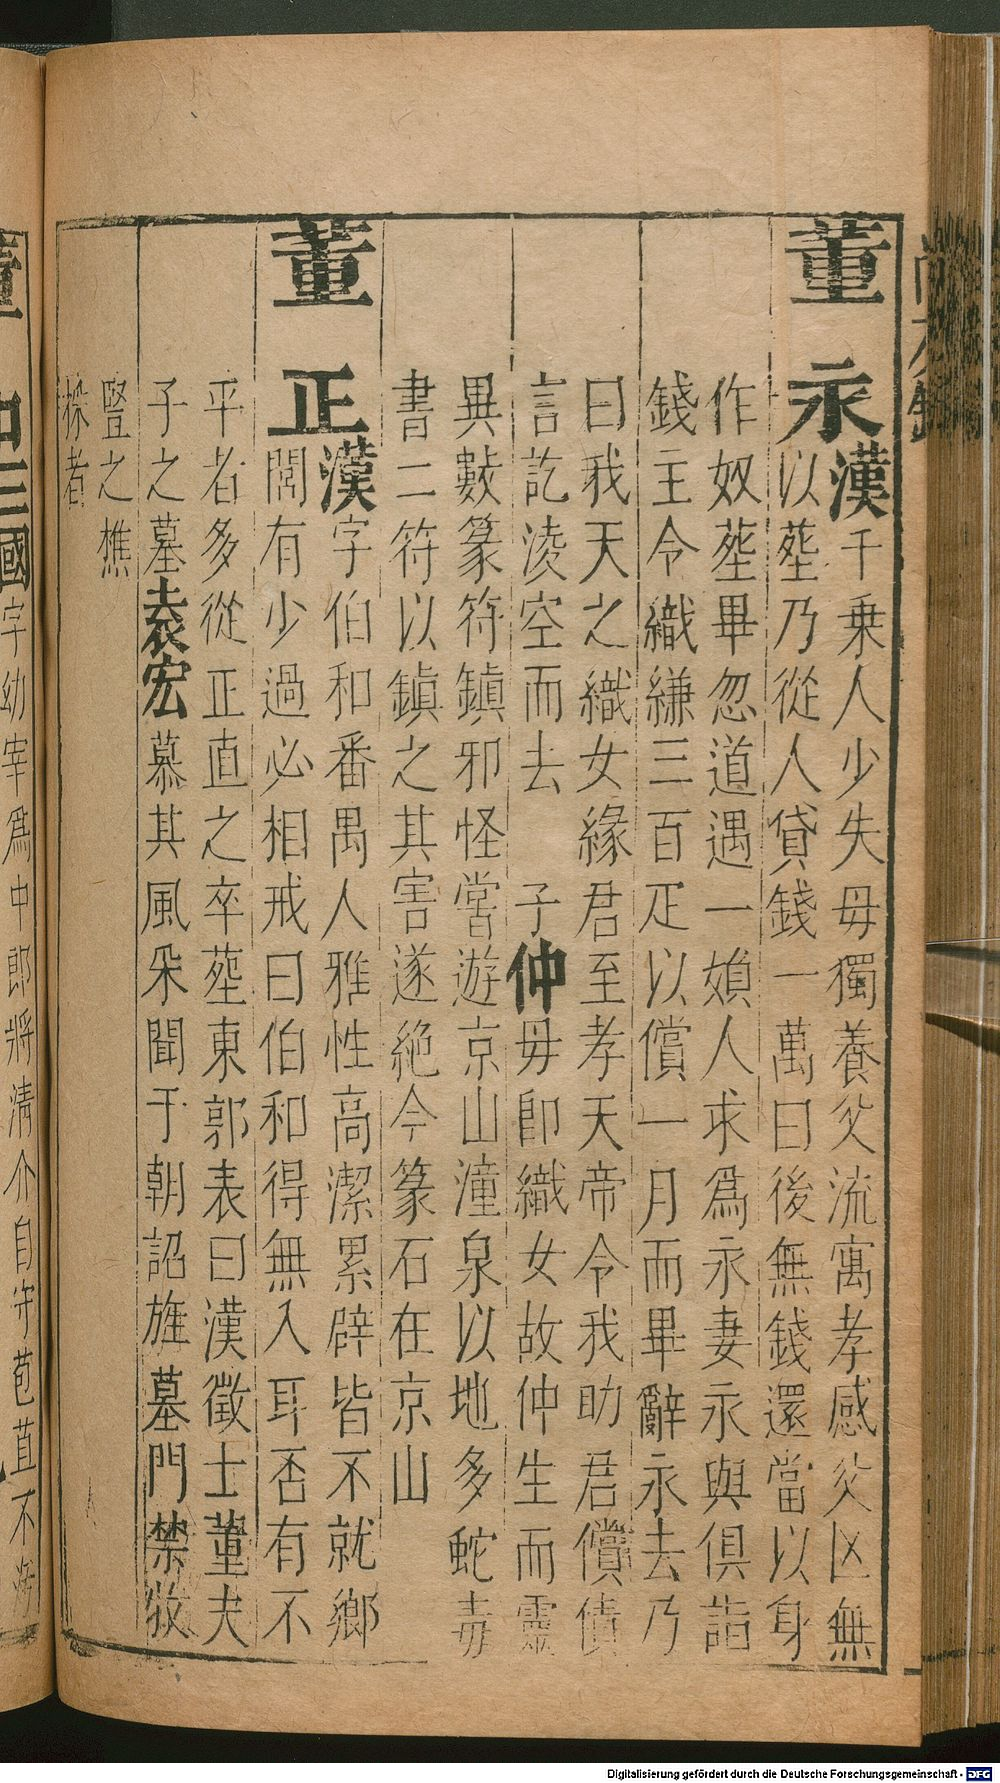 董永漢千乗人少失毋獨養父流寓孝感父亾無
以塟乃從人貸錢一萬曰後無錢還當以身
作奴塟畢忽道遇一婦人求爲永妻永與俱詣
錢主令織縑三百疋以償一月而畢辭永去乃
曰我天之織女緣君至孝天帝令我助君償債
言訖淩空而去　子仲毋卽織女故仲生而靈
異數篆符鎮邪怪嘗遊京山潼泉以地多蛇毒
書二符以鎮之其害遂絕今篆石在京山
董正漢字伯和番禺人雅性高潔累辟皆不就鄉
閭有少過必相戒曰伯和得無入耳否有不
平者多從正直之卒塟東郭表曰漢徵士董夫
子之墓袁宏慕其風采聞于朝詔旌墓門禁牧
豎之樵
採者
董和三國字幼宰爲中郎將清介自守苞苴不
Digitalisierung gefördert durch die Deutsche Forschungsgemeinschaft - DFG